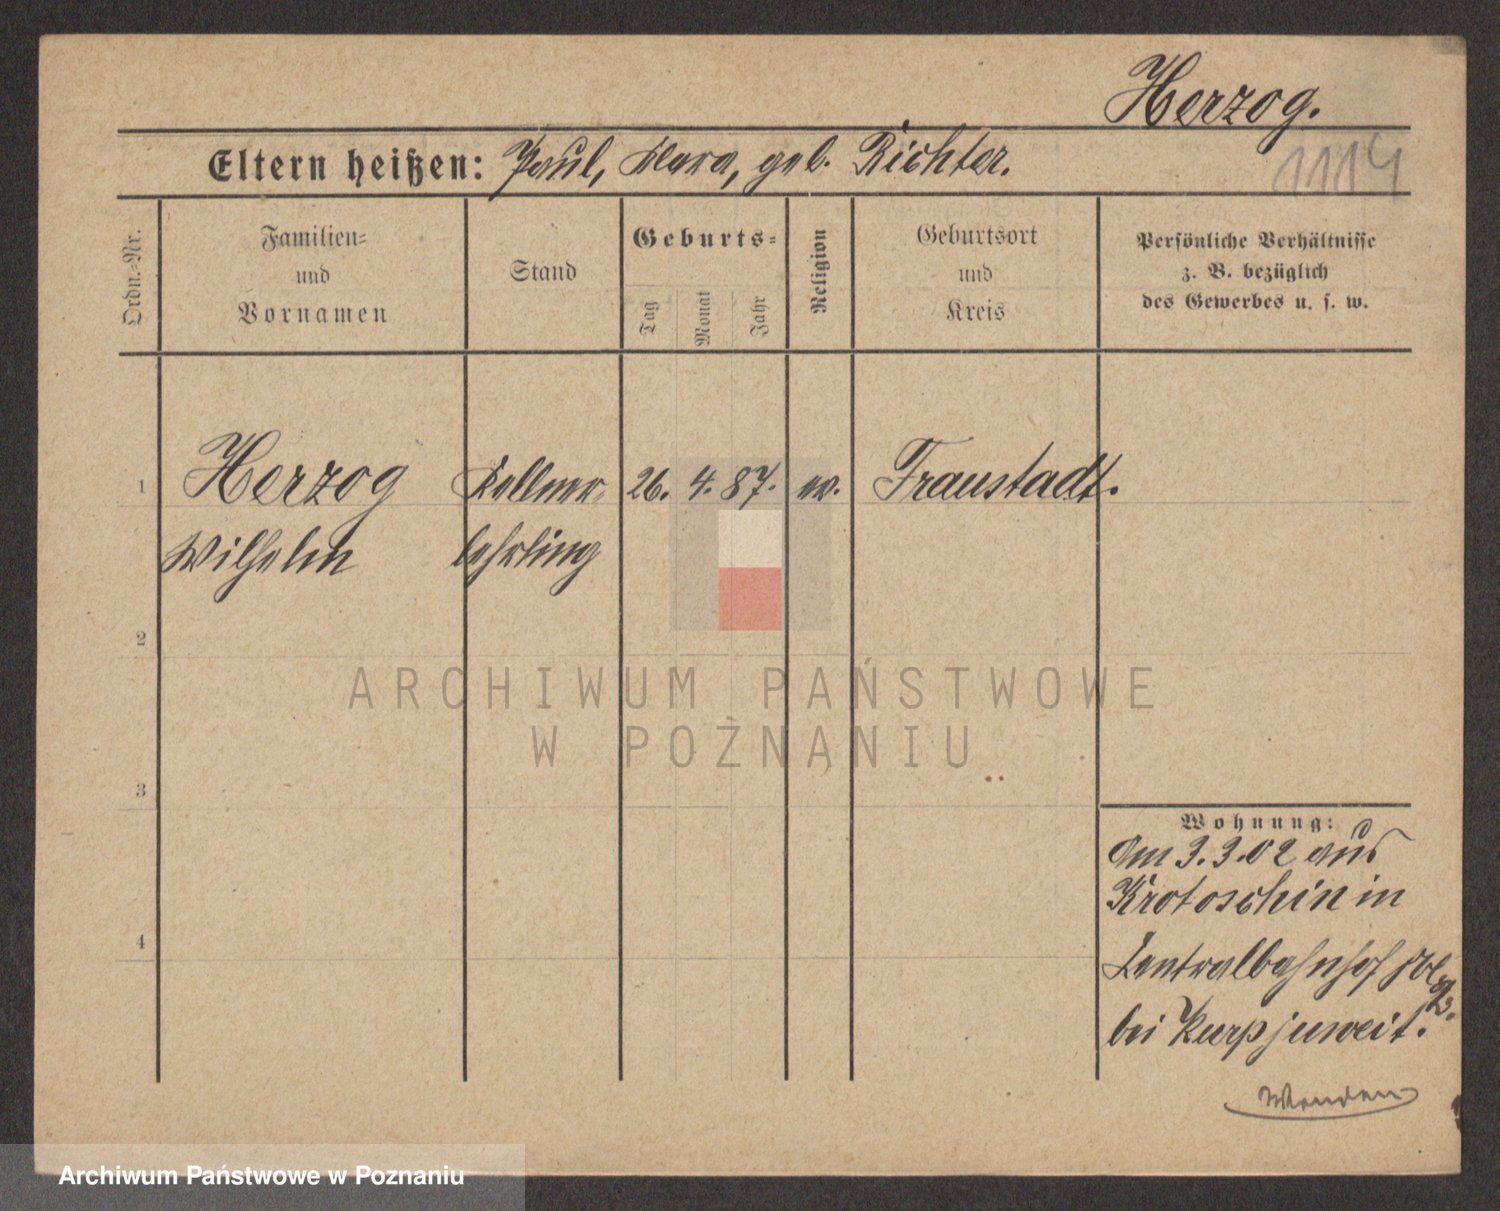 Herzog.
Eltern heißen: Paul, Klara, geb. Richter.
1114
Ordn.-Nr.
Familien-
und
Vornamen
Stand
Geburts-
Tag
Monat
Jahr
Religion
Geburtsort
und
Kreis
Persönliche Verhältnisse
z. B. bezüglich
des Gewerbes u. s. w.
1 Herzog Kellner 26. 4. 87. ev. Fraustadt.
Wilhelm lehrling
2
3
4
Wohnung:
Am 3.3.02 aus
Krotoschin in
Zentralbahnhof
bei Kurpjuweit.
Wenden
ARCHIWUM PAŃSTWOWE
W POZNANIU
Archiwum Państwowe w Poznaniu